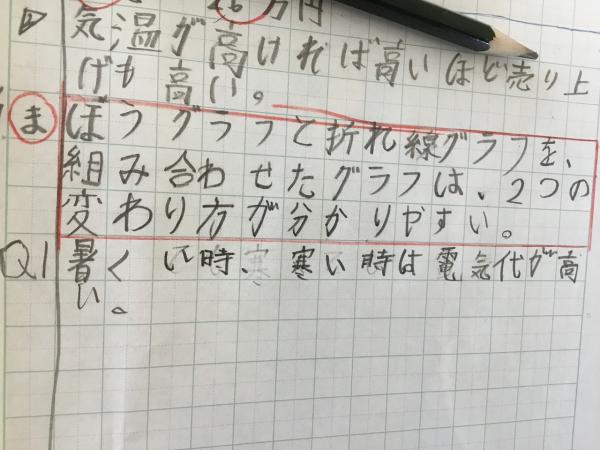 26万円
気温が高ければ高いほど売り上
げも高い。
ま ぼうグラフと折れ線グラフを、
組み合わせたグラフは、2つの
変わり方が分かりやすい。
Q1 暑くい時、寒い時は電気代が高
い。